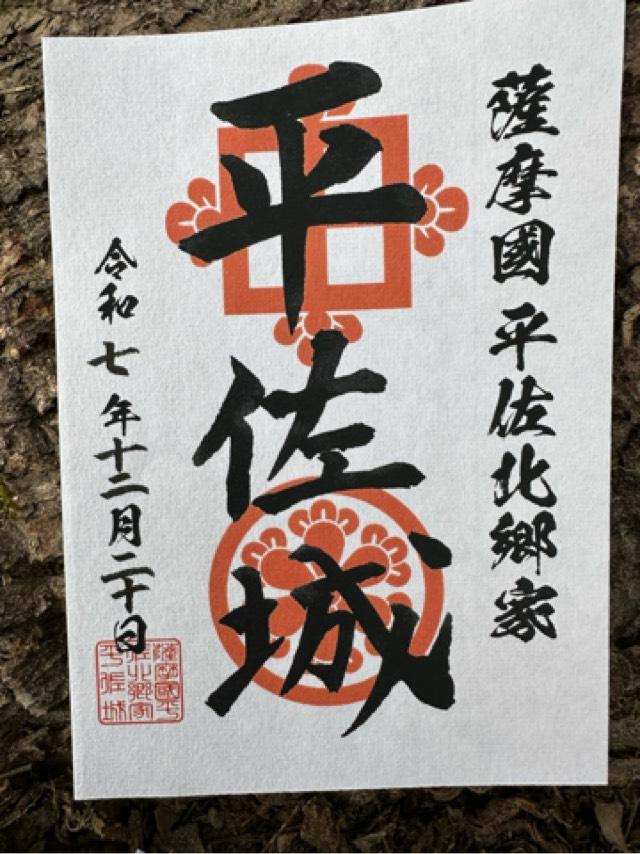 薩摩國 平佐北郷家
平佐城
令和七年十二月二十日
薩摩國平
佐北郷家
平佐城